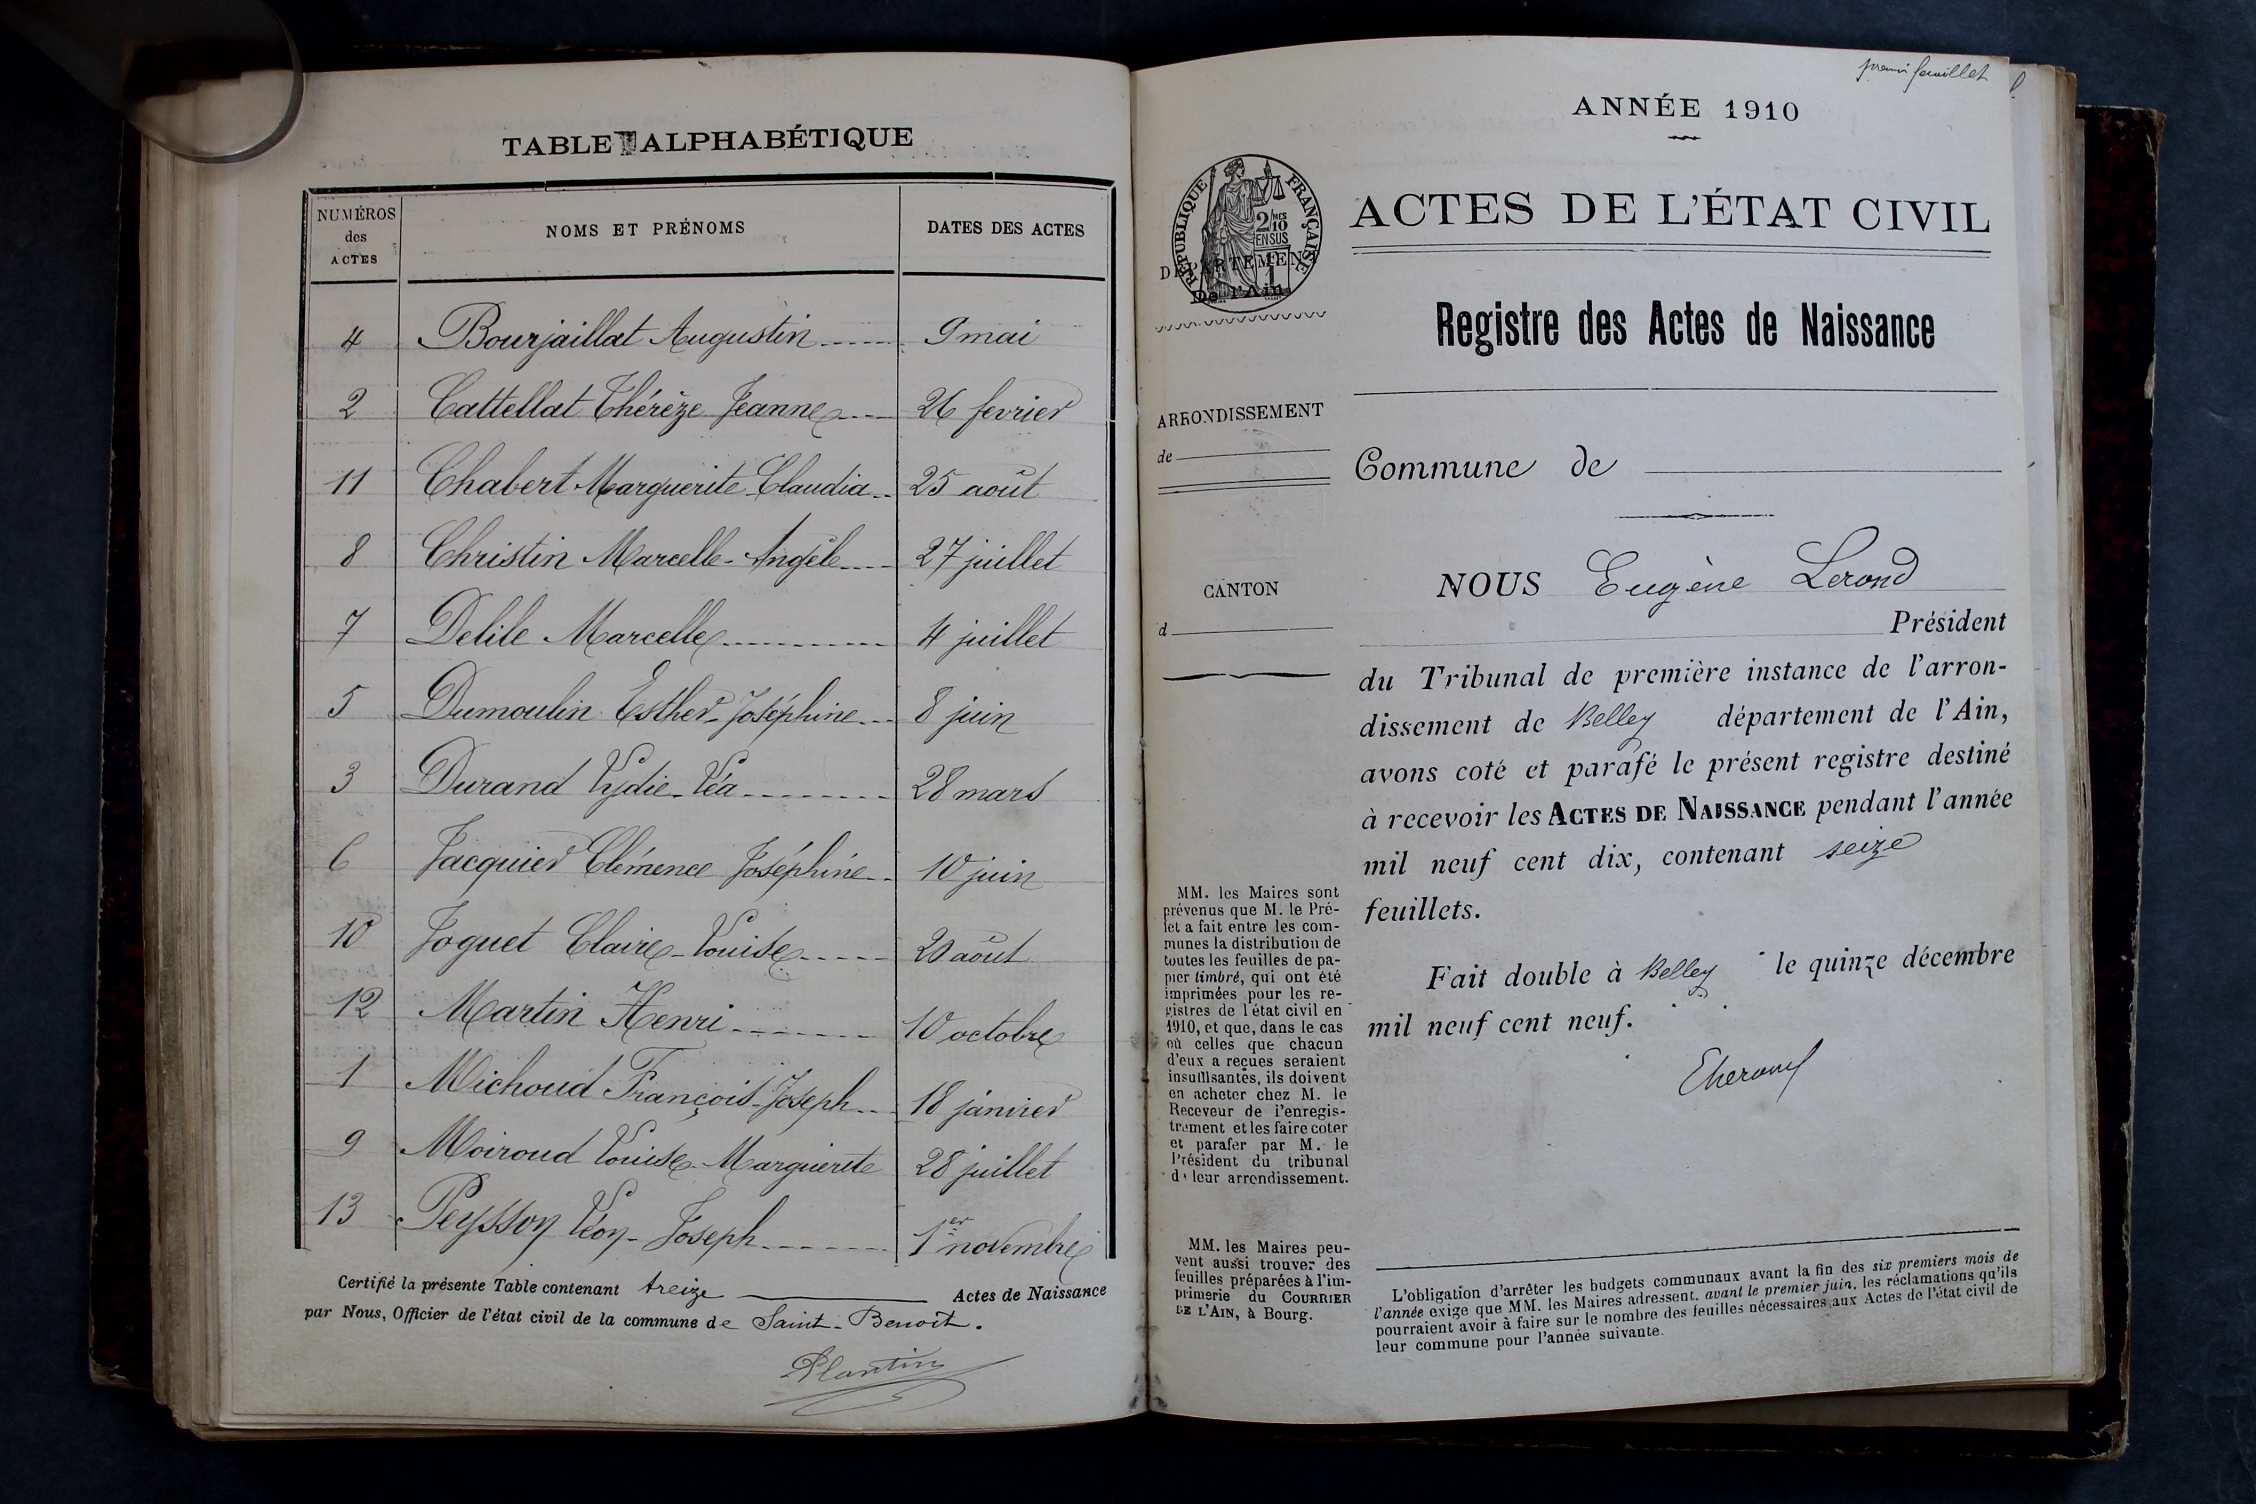 TABLE ALPHABÉTIQUE
NUMÉROS des ACTES
NOMS ET PRÉNOMS
DATES DES ACTES
4 Bourjaillat Augustin 9 mai
2 Cattellat Thérèze Jeanne 26 fevrier
11 Chabert Marguerite Claudia 25 août
8 Christin Marcelle-Angèle 27 juillet
7 Delile Marcelle 4 juillet
5 Dumoulin Esther-Joséphine 8 juin
3 Durand Lydie-Léa 28 mars
6 Jacquier Clémence Joséphine 10 juin
10 Joguet Claire-Louise 20 août
12 Martin Henri 10 octobre
1 Michoud François-Joseph 18 janvier
9 Moiroud Louise-Marguerite 28 juillet
13 Peysson Léon-Joseph 1er novembre
Certifié la présente Table contenant treize Actes de Naissance
par Nous, Officier de l'état civil de la commune de Saint-Benoît.
Plantin
premi feuillet
ANNÉE 1910
RÉPUBLIQUE FRANÇAISE
2/10 MES
EN SUS
ACTES DE L'ÉTAT CIVIL
DÉPARTEMENT
De l'Ain
Registre des Actes de Naissance
ARRONDISSEMENT
de
Commune de
CANTON
d
NOUS Eugène Lerond
Président
du Tribunal de première instance de l'arron-
dissement de Belley département de l'Ain,
avons coté et parafé le présent registre destiné
à recevoir les ACTES DE NAISSANCE pendant l'année
mil neuf cent dix, contenant seize
feuillets.
Fait double à Belley le quinze décembre
mil neuf cent neuf.
MM. les Maires sont
prévenus que M. le Pré-
fet a fait entre les com-
munes la distribution de
toutes les feuilles de pa-
pier timbré, qui ont été
imprimées pour les re-
gistres de l'état civil en
1910, et que, dans le cas
où celles que chacun
d'eux a reçues seraient
insuffisantes, ils doivent
en acheter chez M. le
Receveur de l'enregis-
trement et les faire coter
et parafer par M. le
Président du tribunal
de leur arrondissement.
MM. les Maires peu-
vent aussi trouver des
feuilles préparées à l'im-
primerie du COURRIER
DE L'AIN, à Bourg.
L'obligation d'arrêter les budgets communaux avant la fin des six premiers mois de
l'année exige que MM. les Maires adressent, avant le premier juin, les réclamations qu'ils
pourraient avoir à faire sur le nombre des feuilles nécessaires aux Actes de l'état civil de
leur commune pour l'année suivante.